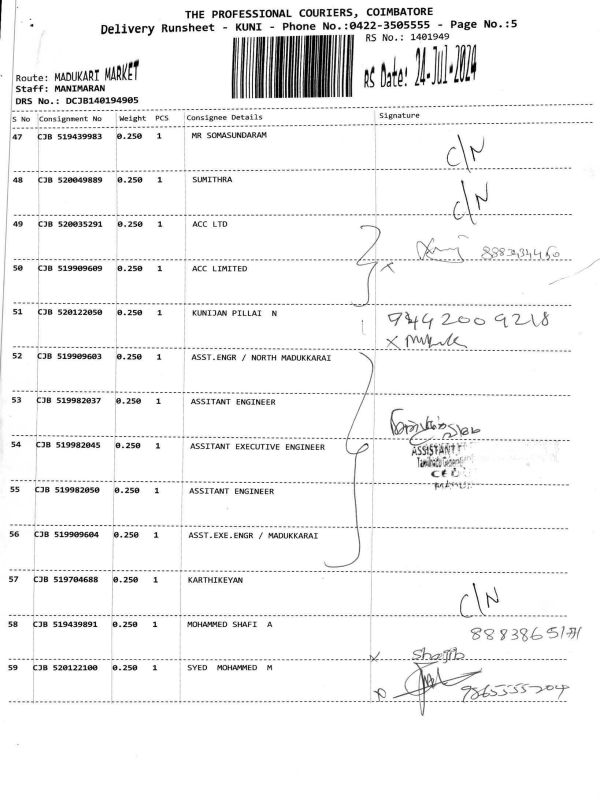 THE PROFESSIONAL COURIERS, COIMBATORE
Delivery Runsheet - KUNI - Phone No.:0422-3505555 - Page No.:5
RS No.: 1401949
Route: MADUKARI MARKET
RS Date: 24-Jul-2024
Staff: MANIMARAN
DRS No.: DCJB140194905
S No Consignment No Weight PCS Consignee Details Signature
47 CJB 519439983 0.250 1 MR SOMASUNDARAM
C/N
48 CJB 520049889 0.250 1 SUMITHRA
C/N
49 CJB 520035291 0.250 1 ACC LTD
50 CJB 519909609 0.250 1 ACC LIMITED
x
51 CJB 520122050 0.250 1 KUNIJAN PILLAI N
9442009218
x
52 CJB 519909603 0.250 1 ASST.ENGR / NORTH MADUKKARAI
53 CJB 519982037 0.250 1 ASSITANT ENGINEER
54 CJB 519982045 0.250 1 ASSITANT EXECUTIVE ENGINEER
ASSISTANT
55 CJB 519982050 0.250 1 ASSITANT ENGINEER
56 CJB 519909604 0.250 1 ASST.EXE.ENGR / MADUKKARAI
57 CJB 519704688 0.250 1 KARTHIKEYAN
C/N
58 CJB 519439891 0.250 1 MOHAMMED SHAFI A
x
59 CJB 520122100 0.250 1 SYED MOHAMMED M
9865555204